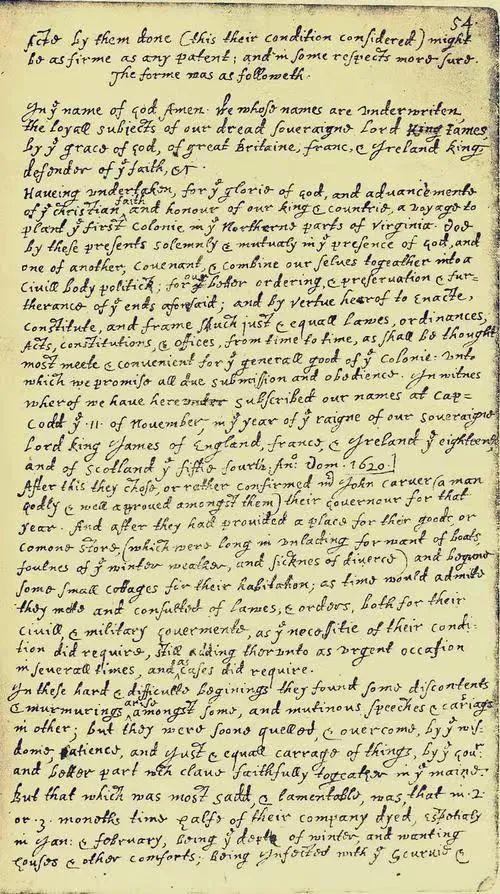 54
Acts by them done (this their condition considered) might
be as firme as any patent; and in some respects more sure.
The forme was as followeth.
In yͤ name of god Amen. We whose names are underwriten,
the loyall subjects of our dread soveraigne Lord King James
by yͤ grace of god, of great Britaine, franc, & Ireland king,
defender of yͤ faith, &c
Haveing undertaken, for yͤ glorie of god, and advancemente
of yͤ christian faith and honour of our king & countrie, a voyage to
plant yͤ first colonie in yͤ Northerne parts of Virginia. Doe
by these presents solemnly & mutualy in yͤ presence of god, and
one of another, covenant, & combine our selves togeather into a
civill body politick; for our better ordering, & preservation & fur=
therance of yͤ ends aforesaid; and by vertue hearof to enacte,
constitute, and frame such just & equall lawes, ordinances,
Acts, constitutions, & offices, from time to time, as shall be thought
most meete & convenient for yͤ generall good of yͤ colonie: unto
which we promise all due submission and obedience. In witnes
wherof we have hereunder subscribed our names at cap=
Codd yͤ .11. of November, in yͤ year of yͤ raigne of our soveraigne
Lord king James of England, france, & Ireland yͤ eighteenth
and of Scotland yͤ fiftie fourth. Anͦ: Dom. 1620.]
After this they chose, or rather confirmed mͬ John carver (a man
godly & well approved amongst them) their governour for that
year. And after they had provided a place for their goods, or
comone store, (which were long in unlading for want of boats,
foulnes of yͤ winter weather, and sicknes of diverce) and begune
some small cottages for their habitation; as time would admitte
they mette and consulted of lawes, & orders, both for their
civill, & military govermente, as yͤ necessitie of their condi=
tion did require, still adding therunto as urgent occasion
in severall times, and as cases did require.
In these hard & difficulte beginings they found some discontents
& murmurings arise amongst some, and mutinous speeches & cariags
in other; but they were soone quelled, & overcome, by yͤ wis=
dome, patience, and just & equall carrage of things, by yͤ Gouͬ
and better part wch clave faithfully togeather in yͤ maine.
But that which was most sadd, & lamentable, was, that in .2.
or .3. moneths time halfe of their company dyed, espetialy
in Jan: & february, being yͤ depth of winter, and wanting
houses & other comforts; being Infected with yͤ Scurvie &